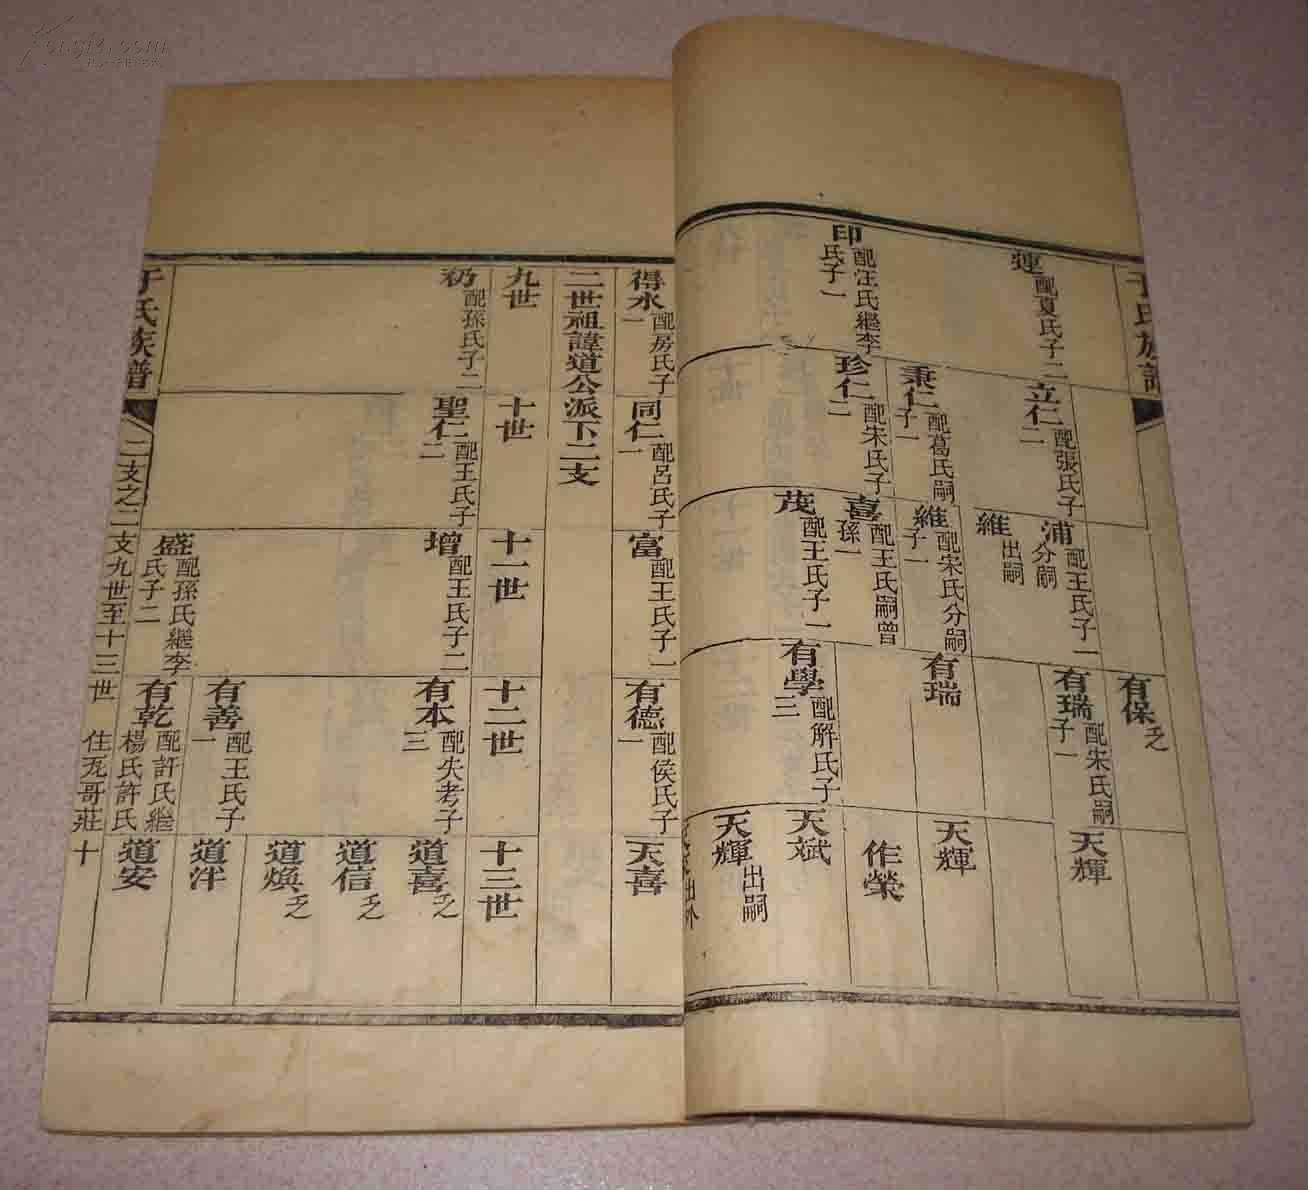 于氏族譜
連 配夏氏子二
立仁 配張氏子二
浦 配王氏子一分嗣
維 出嗣
有保 乏
有瑞 配宋氏嗣子一
天輝
秉仁 配葛氏嗣子一
維 配宋氏分嗣子一
有瑞
天輝
印 配汪氏繼李氏子一
珍仁 配宋氏子二
喜 配王氏嗣曾孫一
作榮
茂 配王氏子一
有學 配解氏子三
天斌
天輝 出嗣
出外
得水 配房氏子一
同仁 配呂氏子一
富 配王氏子一
有德 配侯氏子一
天喜
二世祖諱道公派下二支
九世
十世
十一世
十二世
十三世
礽 配孫氏子二
聖仁 配王氏子二
增 配王氏子二
有本 配失考子三
道喜 乏
道信 乏
道煥 乏
有善 配王氏子一
道泮
盛 配孫氏繼李氏子二
有乾 配許氏繼楊氏許氏
道安
于氏族譜
二支之二支九世至十三世
住瓦哥莊
十